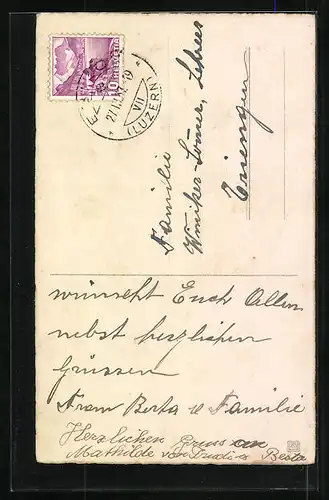 HELVETIA
10
(LUZERN)
VII
Familie
Winiker-Sommer, Lehrers
Triengen
wünscht Euch Allen
nebst herzlichen
Grüssen
Fram Berta u Familie
Herzlichen Gruss an
Mathilde von Trudi u Berta